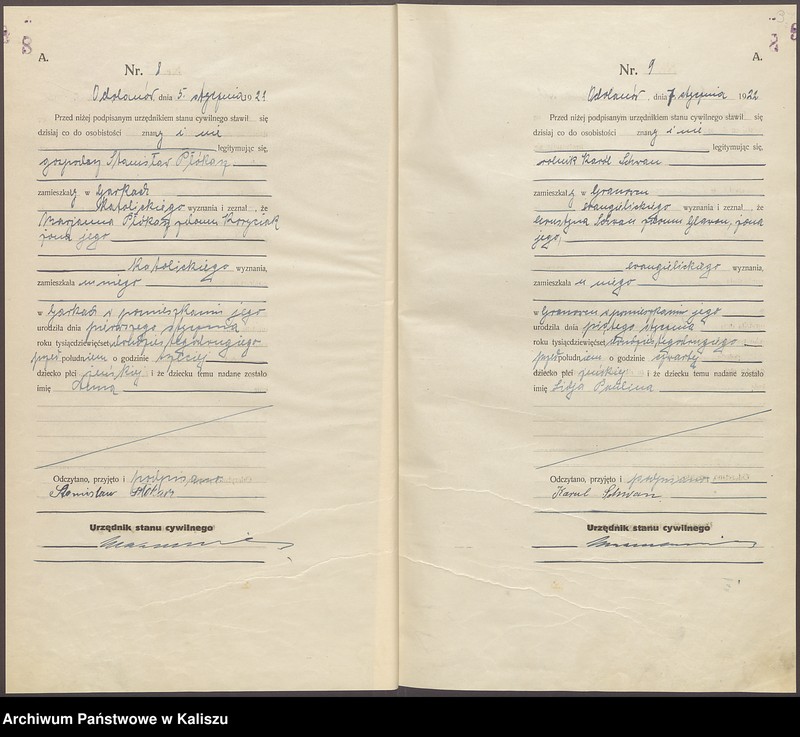 8
A.
Nr. 8
Odolanów, dnia 5. stycznia 1922
Przed niżej podpisanym urzędnikiem stanu cywilnego stawił się
dzisiaj co do osobistości znany i nie
legitymując się,
gospodarz Stanisław Płókarz
zamieszkały w Garkach
katolickiego wyznania i zeznał, że
Marjanna Płókarz z domu
żona jego
katolickiego wyznania,
zamieszkała u niego
w Garkach w pomieszkaniu jego
urodziła dnia pierwszego stycznia
roku tysiącdziewięćset dwudziestegodrugiego
przed południem o godzinie trzeciej
dziecko płci żeńskiej i że dziecku temu nadane zostało
imię Anna
Odczytano, przyjęto i podpisano
Stanisław
Urzędnik stanu cywilnego
A.
Nr. 9
Odolanów, dnia 7 stycznia 1922
Przed niżej podpisanym urzędnikiem stanu cywilnego stawił się
dzisiaj co do osobistości znany i nie
legitymując się,
rolnik Karól Schwan
zamieszkały w
ewangielickiego wyznania i zeznał, że
Schwan z domu żona
jego,
ewangielickiego wyznania,
zamieszkała u niego
w w pomieszkaniu jego
urodziła dnia piątego stycznia
roku tysiącdziewięćset dwudziestegodrugiego
przed południem o godzinie czwartej
dziecko płci żeńskiej i że dziecku temu nadane zostało
imię Lidja Paulina
Odczytano, przyjęto i podpisano
Karol Schwan
Urzędnik stanu cywilnego
Archiwum Państwowe w Kaliszu